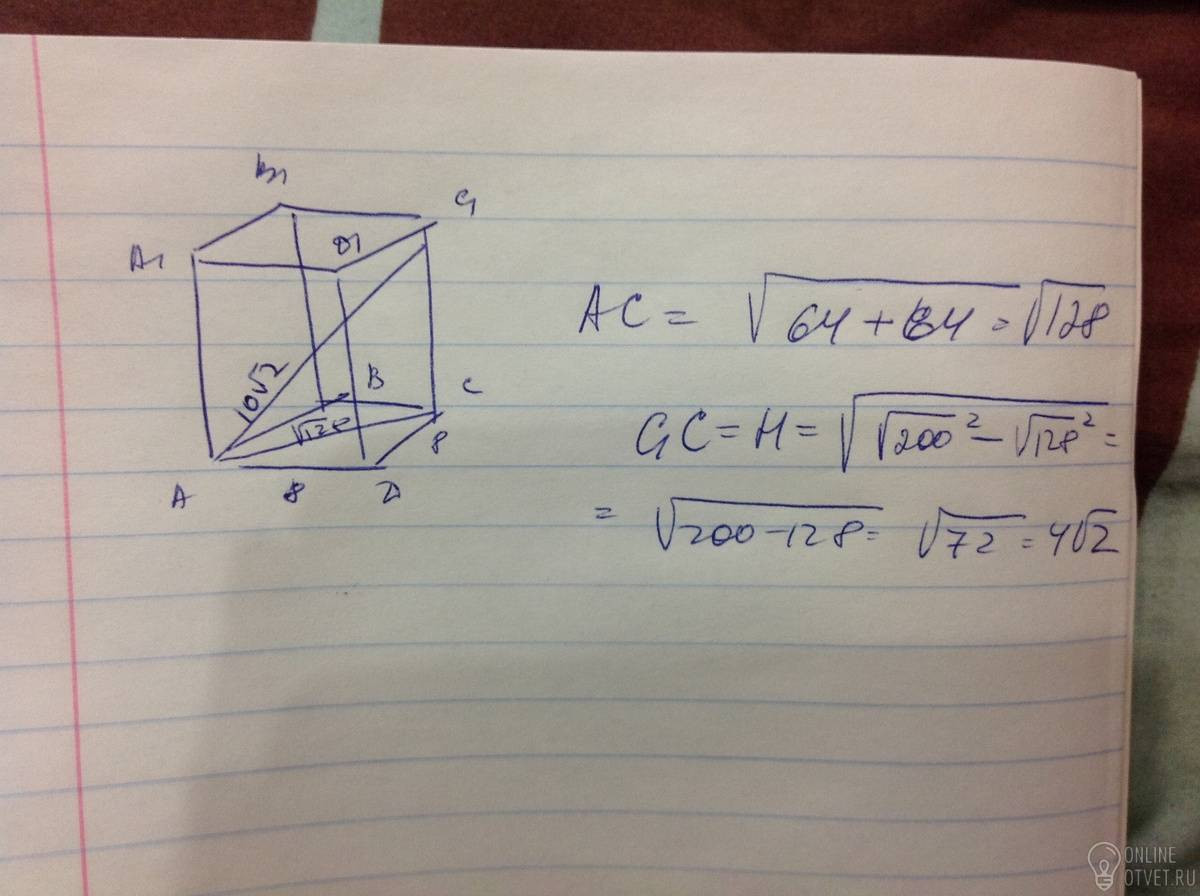 B1
C1
A1
D1
10√2
B
C
√128
8
A
8
D
AC = √64 + 64 = √128
C1C = H = √√200² - √128² =
= √200 - 128 = √72 = 4√2
ONLINE
OTVET.RU